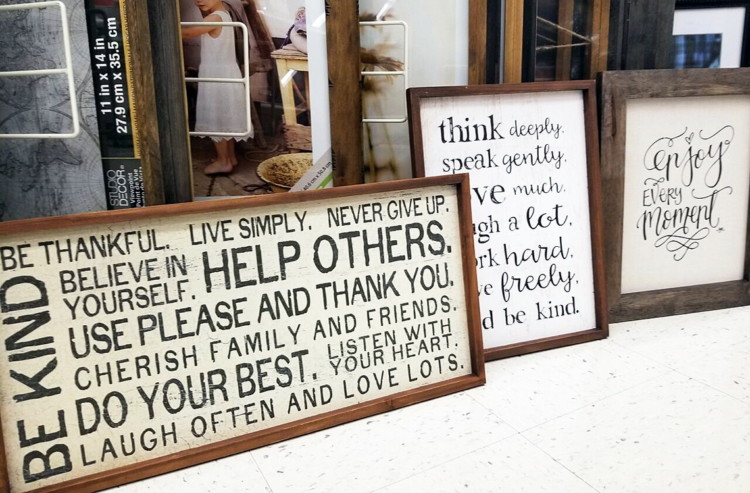 11 in x 14 in
27.9 cm x 35.5 cm
STUDIO
DECOR
BE KIND
BE THANKFUL. LIVE SIMPLY. NEVER GIVE UP.
BELIEVE IN
YOURSELF.
HELP OTHERS.
USE PLEASE AND THANK YOU.
CHERISH FAMILY AND FRIENDS.
DO YOUR BEST.
LISTEN WITH
YOUR HEART.
LAUGH OFTEN AND LOVE LOTS.
think deeply.
speak gently.
ve much.
gh a lot,
rk hard,
ve freely,
d be kind.
enjoy
EVERY
Moment